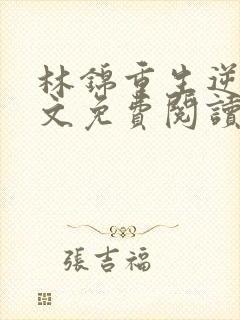 林錦重生逆
文免費閱讀
張吉福